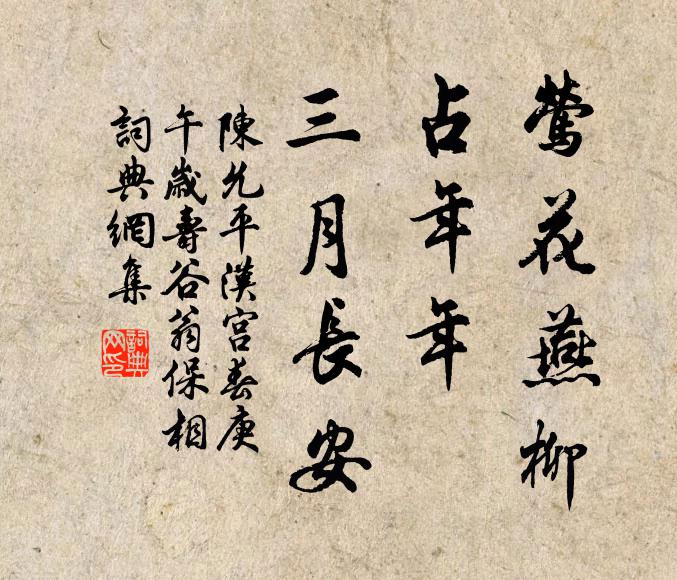 鶯花燕柳
占年年
三月長安
陳允平漢宮春庚
午歲壽谷翁保相
詞典網集
詞典網印